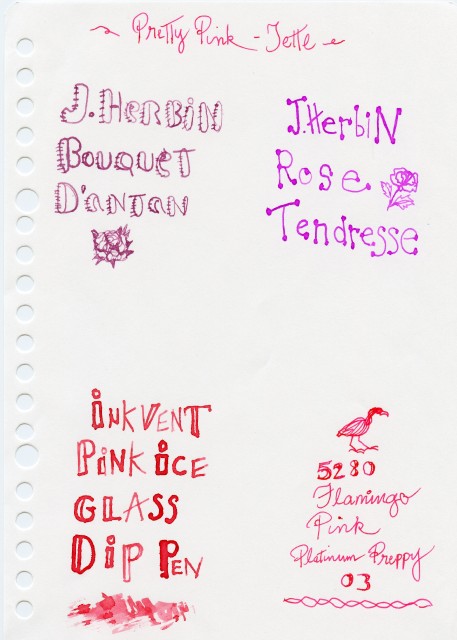 ~ Pretty Pink - Jette ~
J. HERBIN
BOUQUET
D'ANTAN
J. HerbiN
Rose
Tendresse
iNKVENT
PiNK iCE
GLASS
Dip PEN
5280
Flamingo
Pink
Platinum Preppy
03